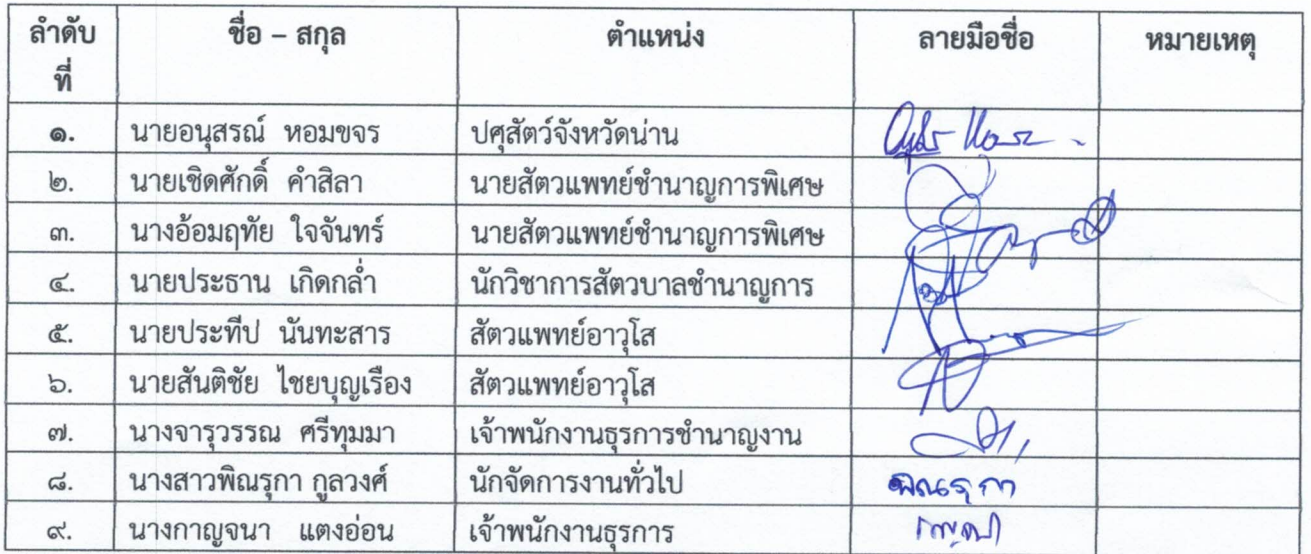 ลำดับที่ ชื่อ – สกุล ตำแหน่ง ลายมือชื่อ หมายเหตุ
๑. นายอนุสรณ์ หอมขจร ปศุสัตว์จังหวัดน่าน
๒. นายเชิดศักดิ์ คำสิลา นายสัตวแพทย์ชำนาญการพิเศษ
๓. นางอ้อมฤทัย ใจจันทร์ นายสัตวแพทย์ชำนาญการพิเศษ
๔. นายประธาน เกิดกล่ำ นักวิชาการสัตวบาลชำนาญการ
๕. นายประทีป นันทะสาร สัตวแพทย์อาวุโส
๖. นายสันติชัย ไชยบุญเรือง สัตวแพทย์อาวุโส
๗. นางจารุวรรณ ศรีทุมมา เจ้าพนักงานธุรการชำนาญงาน
๘. นางสาวพิณรุกา กูลวงศ์ นักจัดการงานทั่วไป พิณรุกา
๙. นางกาญจนา แตงอ่อน เจ้าพนักงานธุรการ